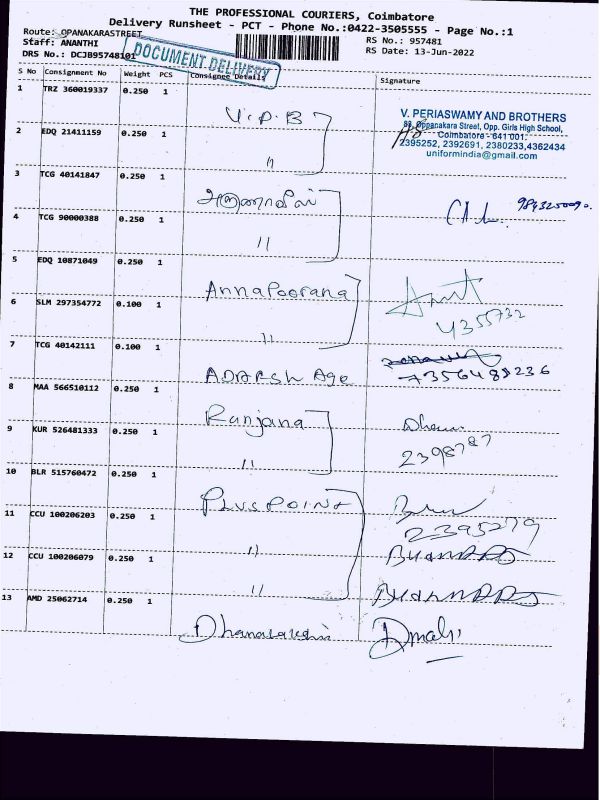 THE PROFESSIONAL COURIERS, Coimbatore
Delivery Runsheet - PCT - Phone No.:0422-3505555 - Page No.:1
Route: OPANAKARASTREET
RS No.: 957481
Staff: ANANTHI
RS Date: 13-Jun-2022
DRS No.: DCJB95748101
DOCUMENT DELIVERY
S No Consignment No Weight PCS Consignee Details Signature
1 TRZ 360019337 0.250 1 V.P.B
V. PERIASWAMY AND BROTHERS
88, Oppanakara Street, Opp. Girls High School,
Coimbatore - 641 001.
2395252, 2392691, 2380233,4362434
uniformindia@gmail.com
2 EDQ 21411159 0.250 1 "
3 TCG 40141847 0.250 1
4 TCG 90000388 0.250 1 "
5 EDQ 10871049 0.250 1 Annapoorana
6 SLM 297354772 0.100 1 " 4355732
7 TCG 40142111 0.100 1 ADARSH Age 7356489236
8 MAA 566510112 0.250 1 Ranjana
9 KUR 526481333 0.250 1 " 2398787
10 BLR 515760472 0.250 1 PLUS POINT
2395279
11 CCU 100206203 0.250 1 "
12 CCU 100206079 0.250 1 "
13 AMD 25062714 0.250 1 Dhanalakshmi